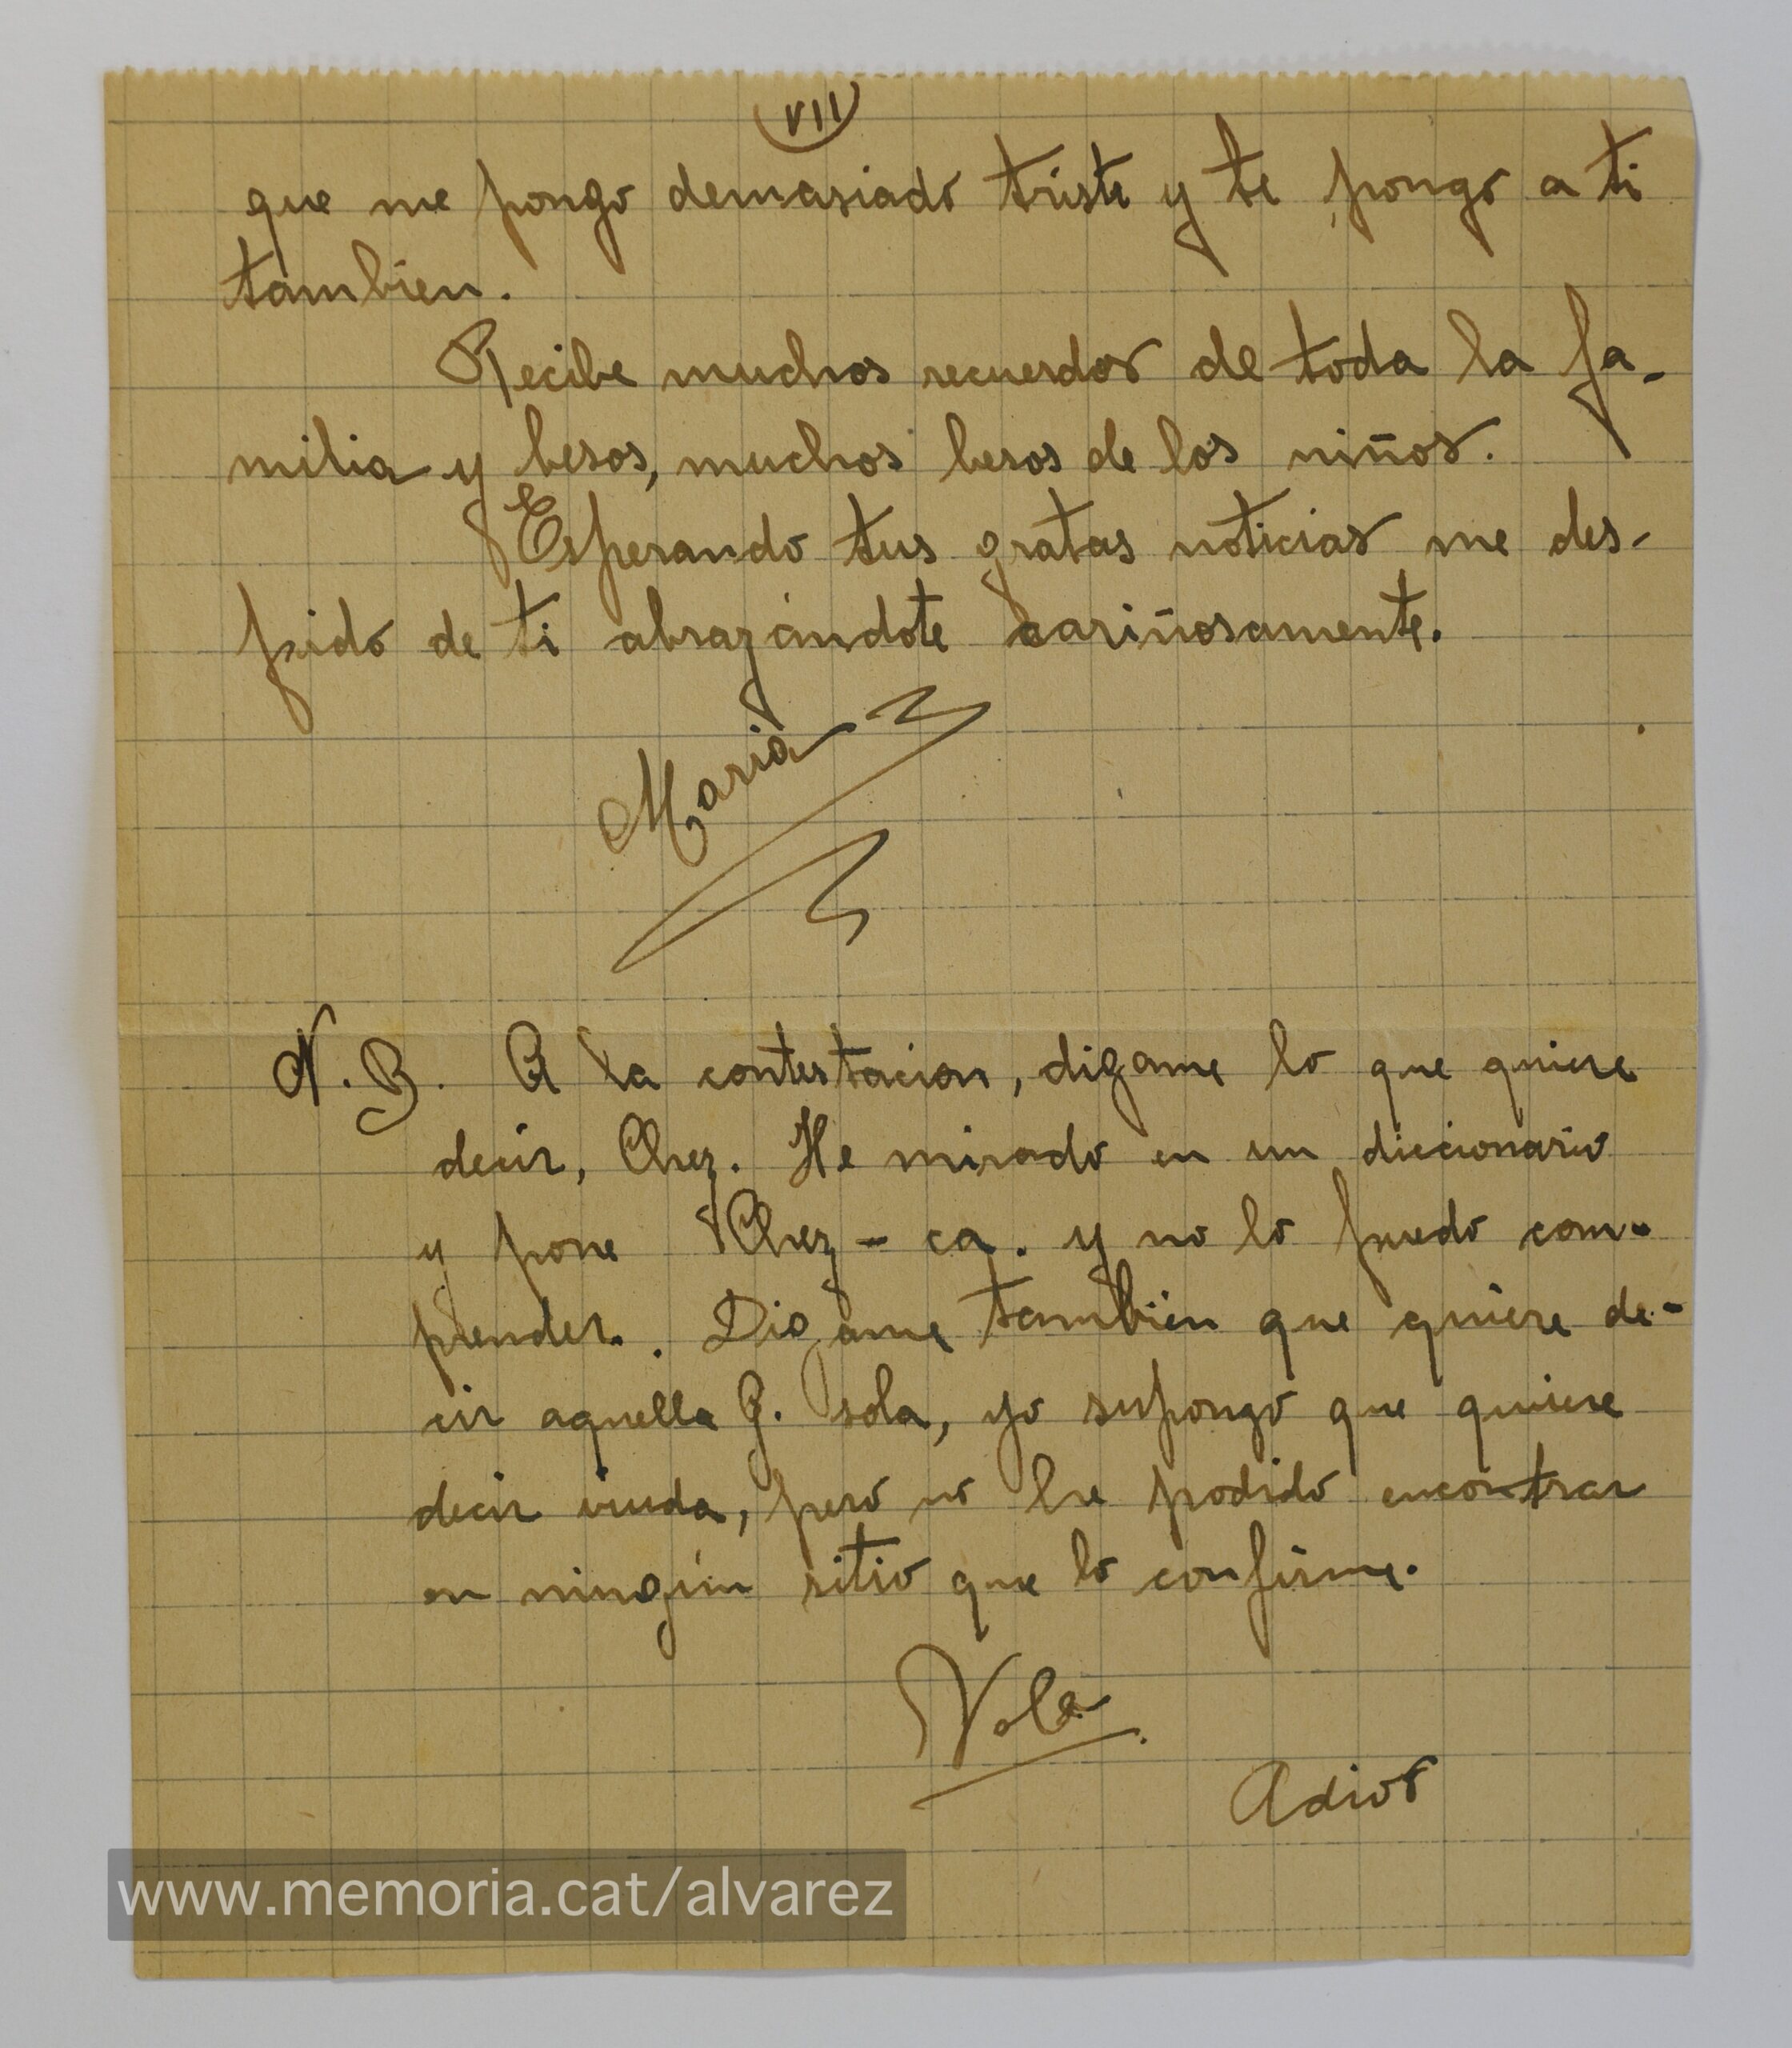 VII
que me pongo demasiado triste y te pongo a ti
tambien.
Recibe muchos recuerdos de toda la fa-
milia y besos, muchos besos de los niños.
Esperando tus gratas noticias me des-
pido de ti abrazándote cariñosamente.
Maria
N. B. A la contestacion, digame lo que quiere
decir, Chez. He mirado en un diccionario
y pone Chez - ca. y no lo puedo com-
prender. Digame tambien que quiere de-
cir aquella Q. sola, yo supongo que quiere
decir viuda, pero no he podido encontrar
en ningún sitio que lo confirme.
Vole
Adios
www.memoria.cat/alvarez